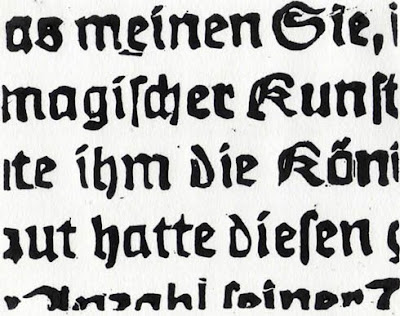 as meinen Sie, i
magiſcher Kunſt
te ihm die Köni
aut hatte dieſen
Anzahl ſeiner